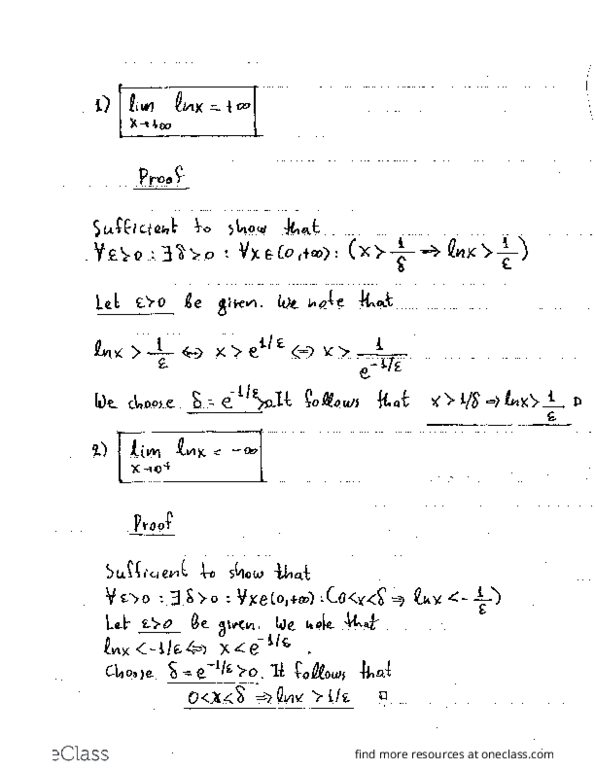 1) lim lnx = +∞
x→+∞
Proof
Sufficient to show that
∀ε>0 : ∃δ>0 : ∀x∈(0,+∞): (x > 1/δ ⇒ lnx > 1/ε)
Let ε>0 be given. We note that
lnx > 1/ε ⇔ x > e^{1/ε} ⇔ x > 1/e^{-1/ε}
We choose δ = e^{-1/ε}>0. It follows that x > 1/δ ⇒ lnx > 1/ε □
2) lim lnx = -∞
x→0⁺
Proof
Sufficient to show that
∀ε>0 : ∃δ>0 : ∀x∈(0,+∞): (0<x<δ ⇒ lnx < -1/ε)
Let ε>0 be given. We note that
lnx < -1/ε ⇔ x < e^{-1/ε}.
Choose δ = e^{-1/ε} > 0. It follows that
0<x<δ ⇒ lnx > 1/ε □
eClass find more resources at oneclass.com